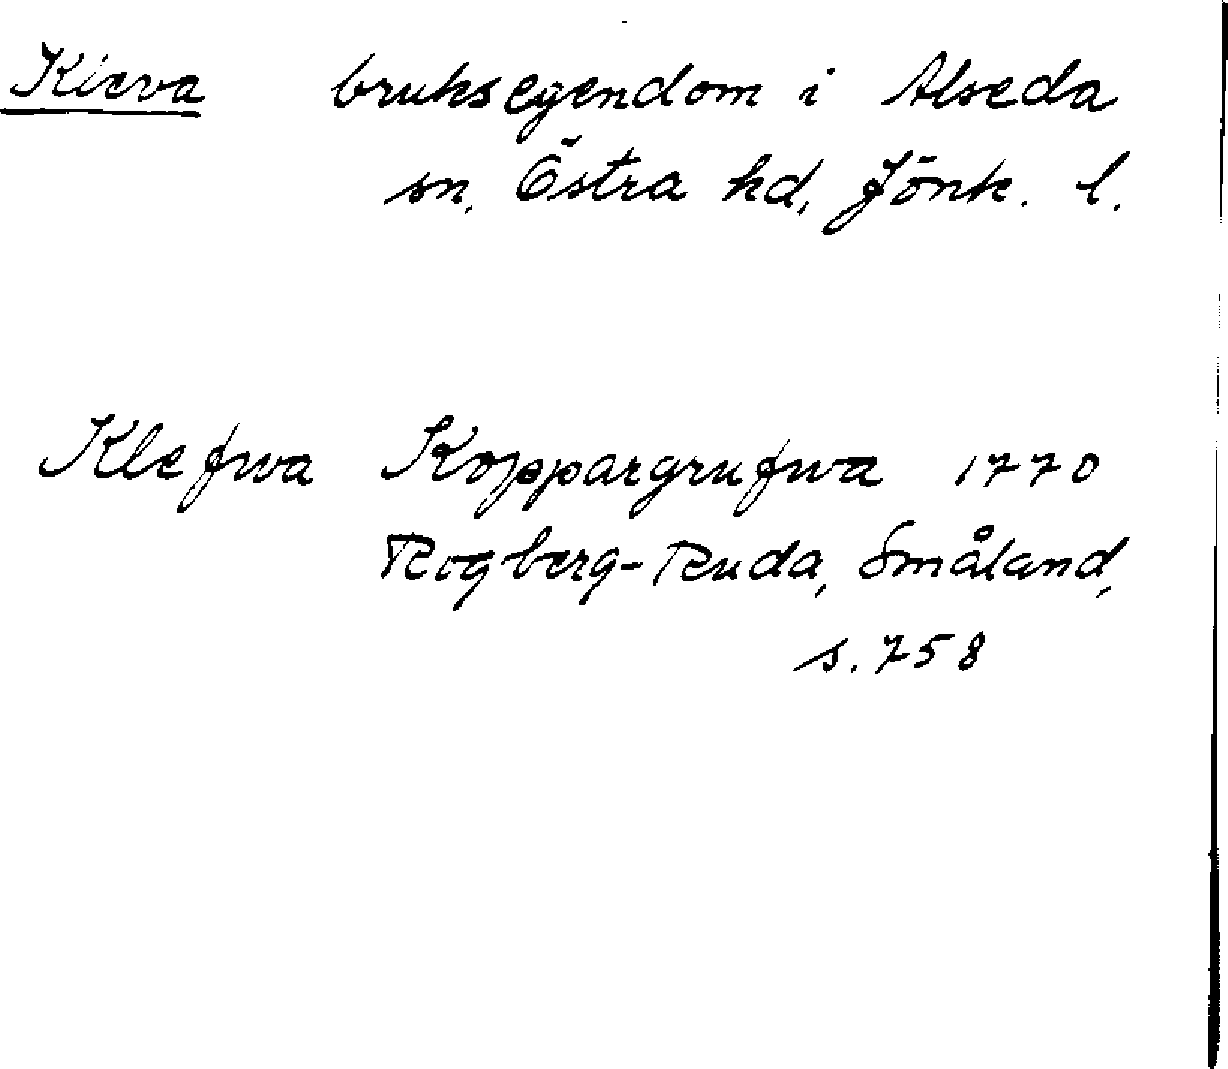 Kleva bruksegendom i Alseda
sn, Östra hd, Jönk. l.
Klefwa Koppargrufwa 1770
Rogberg-Ruda, Småland,
s. 758